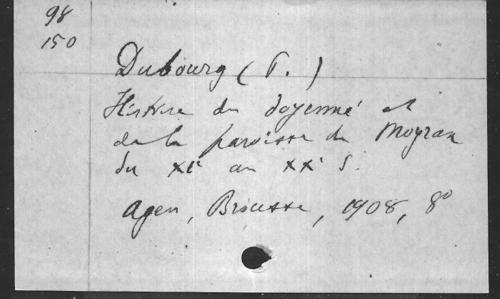 98
150
Dubourg (P.)
Histoire du doyenné et
de la paroisse de Moyrax
du XIe au XXe S.
Agen, Brousse, 1908, 8º